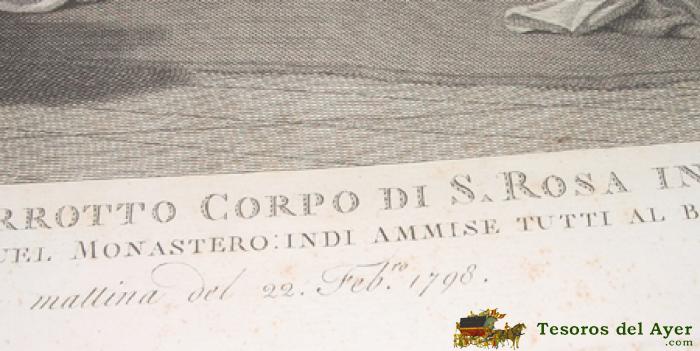 RROTTO CORPO DI S.A ROSA IN
UEL MONASTERO: INDI AMMISE TUTTI AL B
mattina del 22. Feb.ro 1798.
Tesoros del Ayer
.com